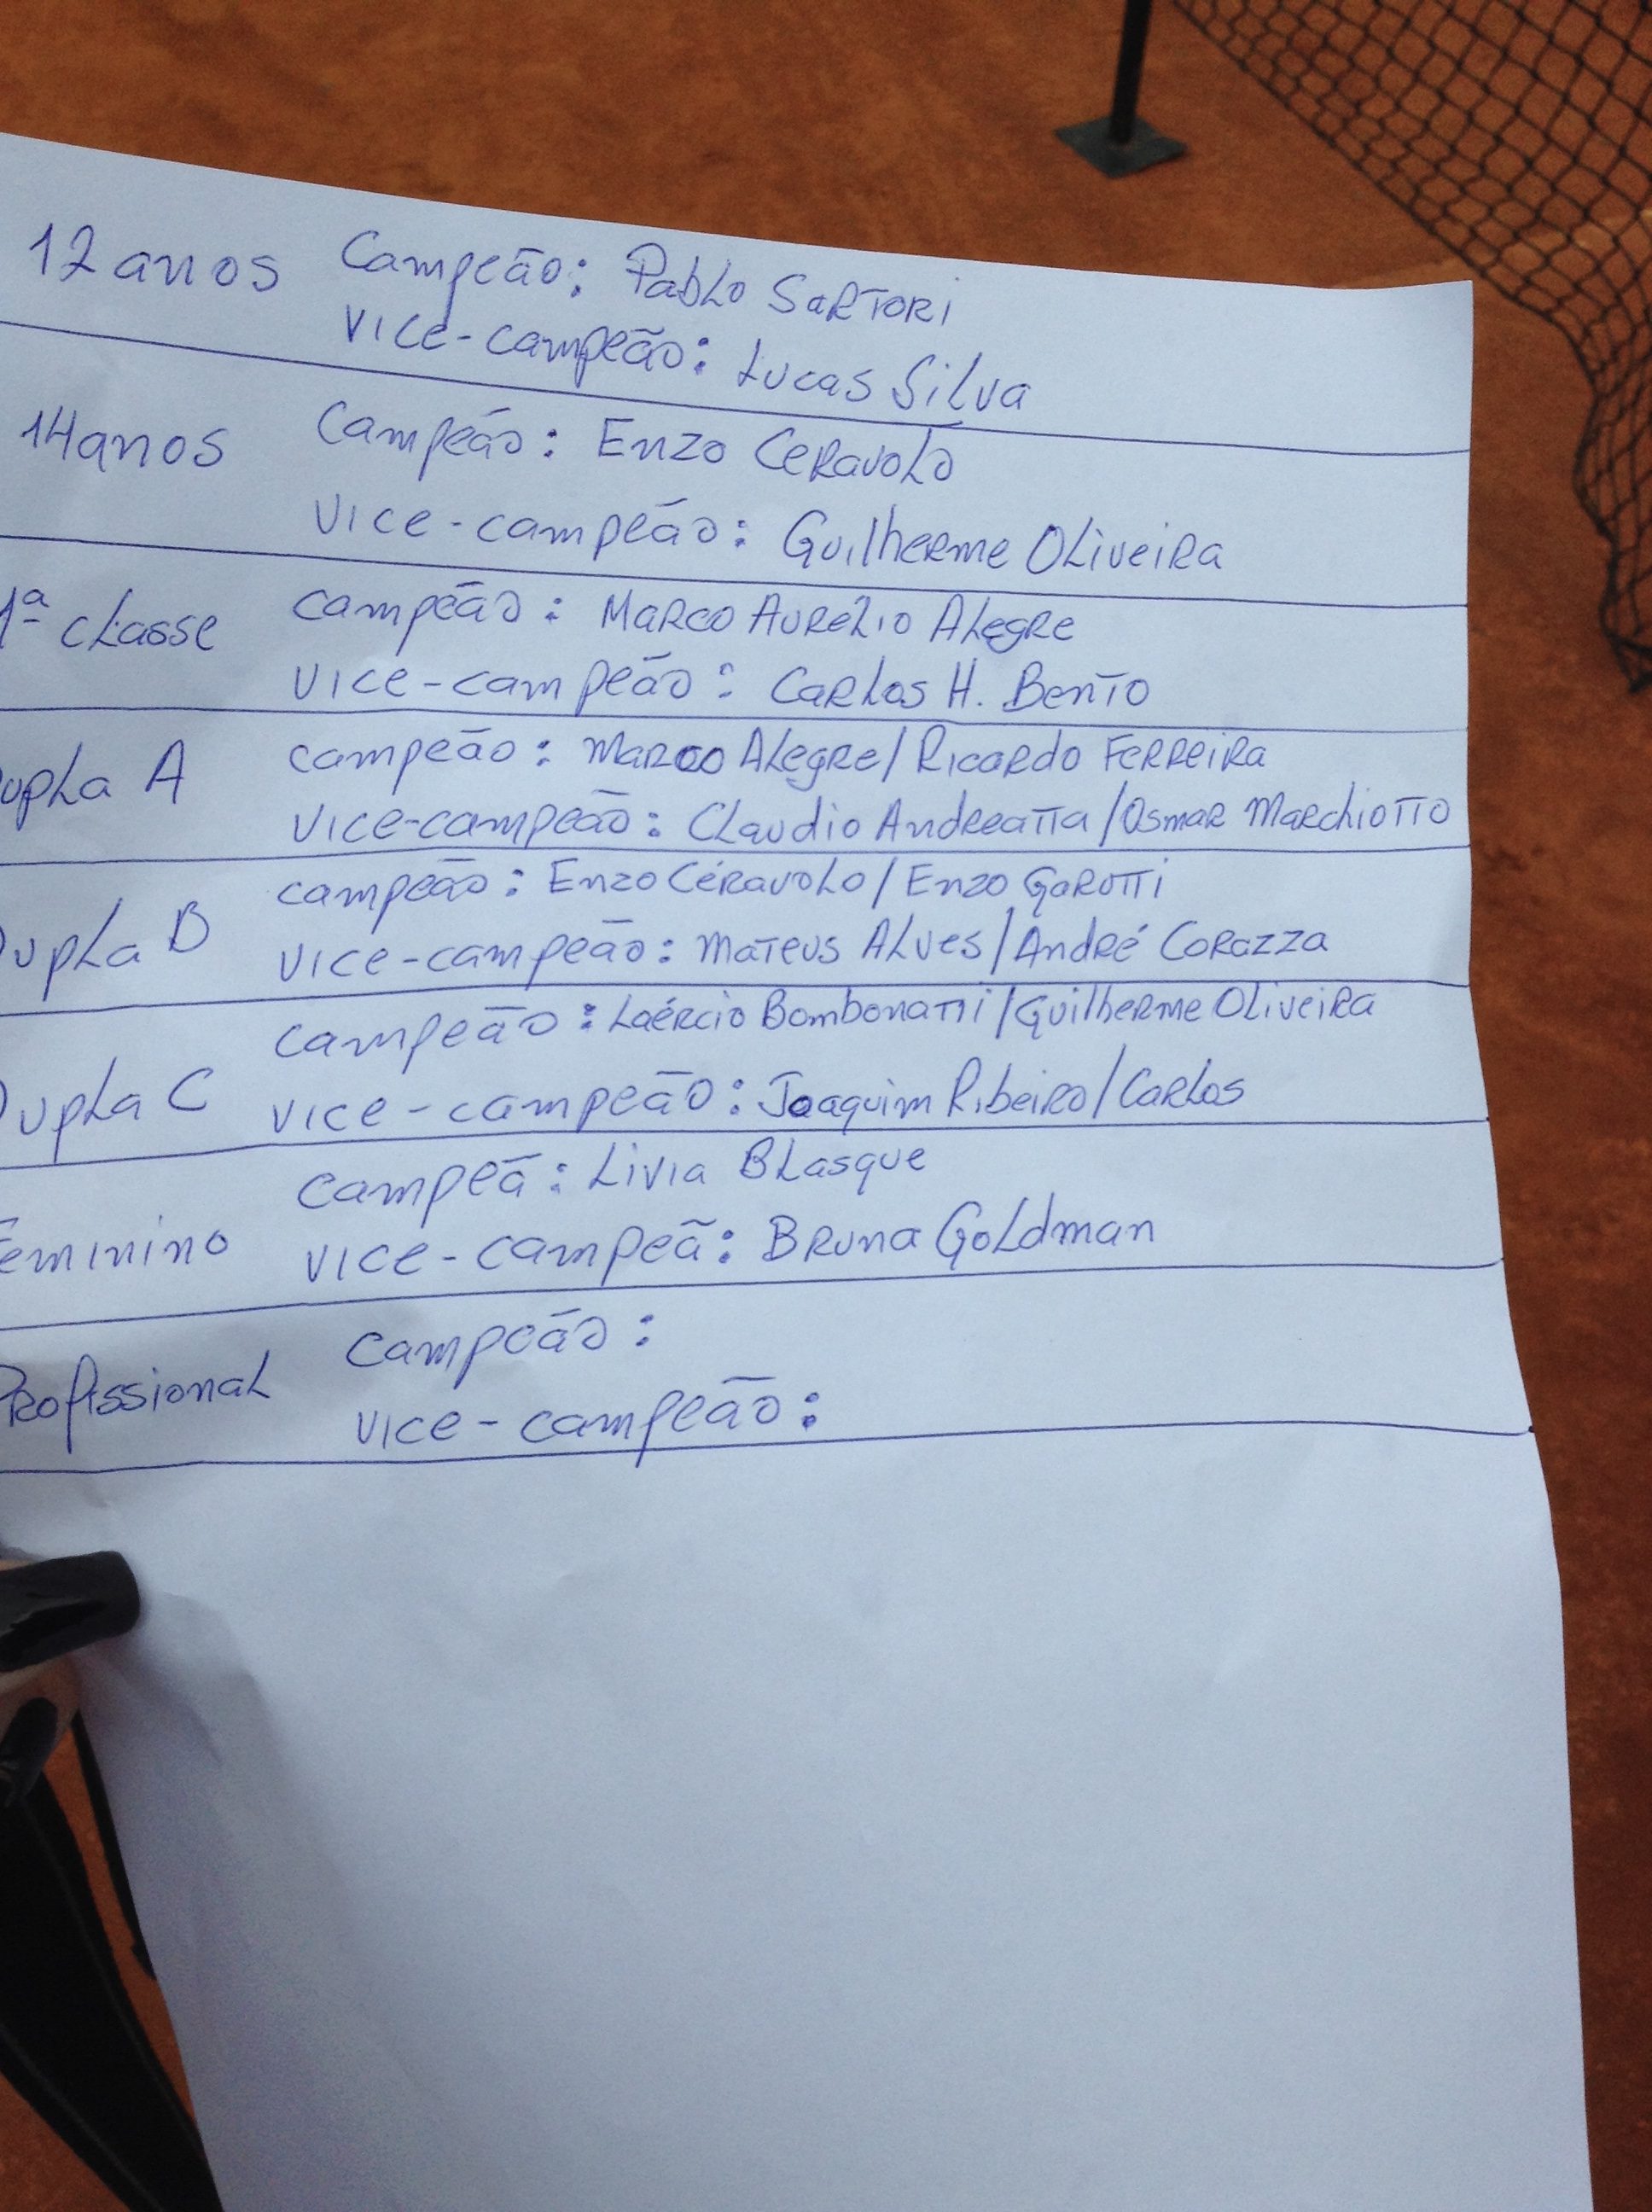 12 anos Campeão: Pablo Sartori
Vice-campeão: Lucas Silva
14 anos Campeão: Enzo Ceravolo
Vice-campeão: Guilherme Oliveira
1ª classe campeão: Marco Aurélio Alegre
Vice-campeão: Carlos H. Bento
Dupla A campeão: Marco Alegre/Ricardo Ferreira
Vice-campeão: Claudio Andreatta/Osmar Marchiotto
Dupla B campeão: Enzo Céravolo/Enzo Garutti
Vice-campeão: Mateus Alves/André Corazza
Dupla C campeão: Laércio Bombonatti/Guilherme Oliveira
Vice-campeão: Joaquim Ribeiro/Carlos
Feminino campeã: Livia Blasque
Vice-campeã: Bruna Goldman
Profissional campeão:
Vice-campeão: